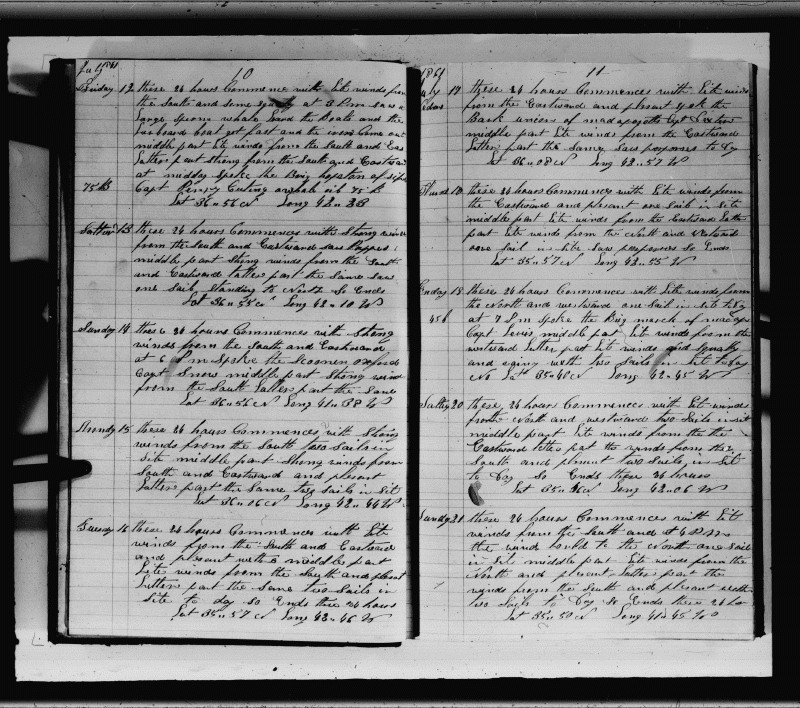 July 1861
10
Friday 12 these 24 hours Commence with Lite winds from
the South and some squaly at 3 Pm saw a
Large Sperm whale Lowrd the Boats and the
Lar board boat got fast and the iron Came out
middle part Lite winds from the South and Eas
Latter part strong from the South and Eastward
at midday Spoke the Brig
75 bb Capt Henry oil 75 b
Lat 36 " 56 N Long 42 " 38
Satter 13 these 24 hours Commences with Strong winds
from the South and Eastward saw
middle part Strong winds from the South
and Eastward Latter part the Same saw
one Sail Standing to So Ends
Lat 36 " 58 N Long 42 " 10 W
Sunday 14 these 24 hours Commences with Strong
winds from the South and Eastward
at 6 Pm Spoke the Scooner oxford
Capt Snow middle part Strong wind
from the South Latter part the Same
Lat 36 " 56 N Long 41 " 38 W
Mondy 15 these 24 hours Commences with Strong
winds from the South two Sails in
site middle part Strong winds from
South and Eastward and plesent
Latter part the Same two Sails in Sit
Lat 36 " 06 N Long 42 " 44 W
Tuesday 16 these 24 hours Commences with Lite
winds from the South and Eastward
and plesent with middle part
Lite winds from the South and plesent
Latter part the Same two Sails in
Site to day So Ends these 24 hours
Lat 35 " 57 N Long 43 " 46 W
1861
11
July 17 these 24 hours Commences with Lite winds
from the Eastward and plesent Spok the
Bark of Capt
middle part Lite winds from the Eastward
Latter part the Same Saw porposes to Dy
Lat 36 " 08 N Long 42 " 57 W
these 24 hours Commences with Lite winds from
the Eastward and plesent one Sail in Site
middle part Lite winds from the Eastward Latte
part Lite winds from the North and
one Sail in Site Saw porposes So Ends
Lat 35 " 57 N Long 42 " 55 W
these 24 hours Commences with Lite winds from
the North and westward one Sail in Sit to Dy
at 7 Pm Spoke the Brig march of
Capt Lewis middle part Lite winds from the
westward Latter part Lite winds and
and with two Sails in Sit to day
Lat 35 " 40 N Long 42 " 45 W
20 these 24 hours Commences with Lite winds
from North and westward two Sails in sit
middle part Lite winds from the the
Eastward Latte part the winds from the
South and plesent two Sails in Sit
to Day So Ends these 24 hours
Lat 35 " 36 N Long 42 " 06 W
Sunday 21 these 24 hours Commences with Lite
winds from the South and at 6 Pm
the wind to the North one Sail
in Site middle part Lite winds from the
North and plesent Latter part the
winds from the South and plesent
two Sails to Day So Ends these 24 ho
Lat 35 " 50 N Long 41 " 45 W